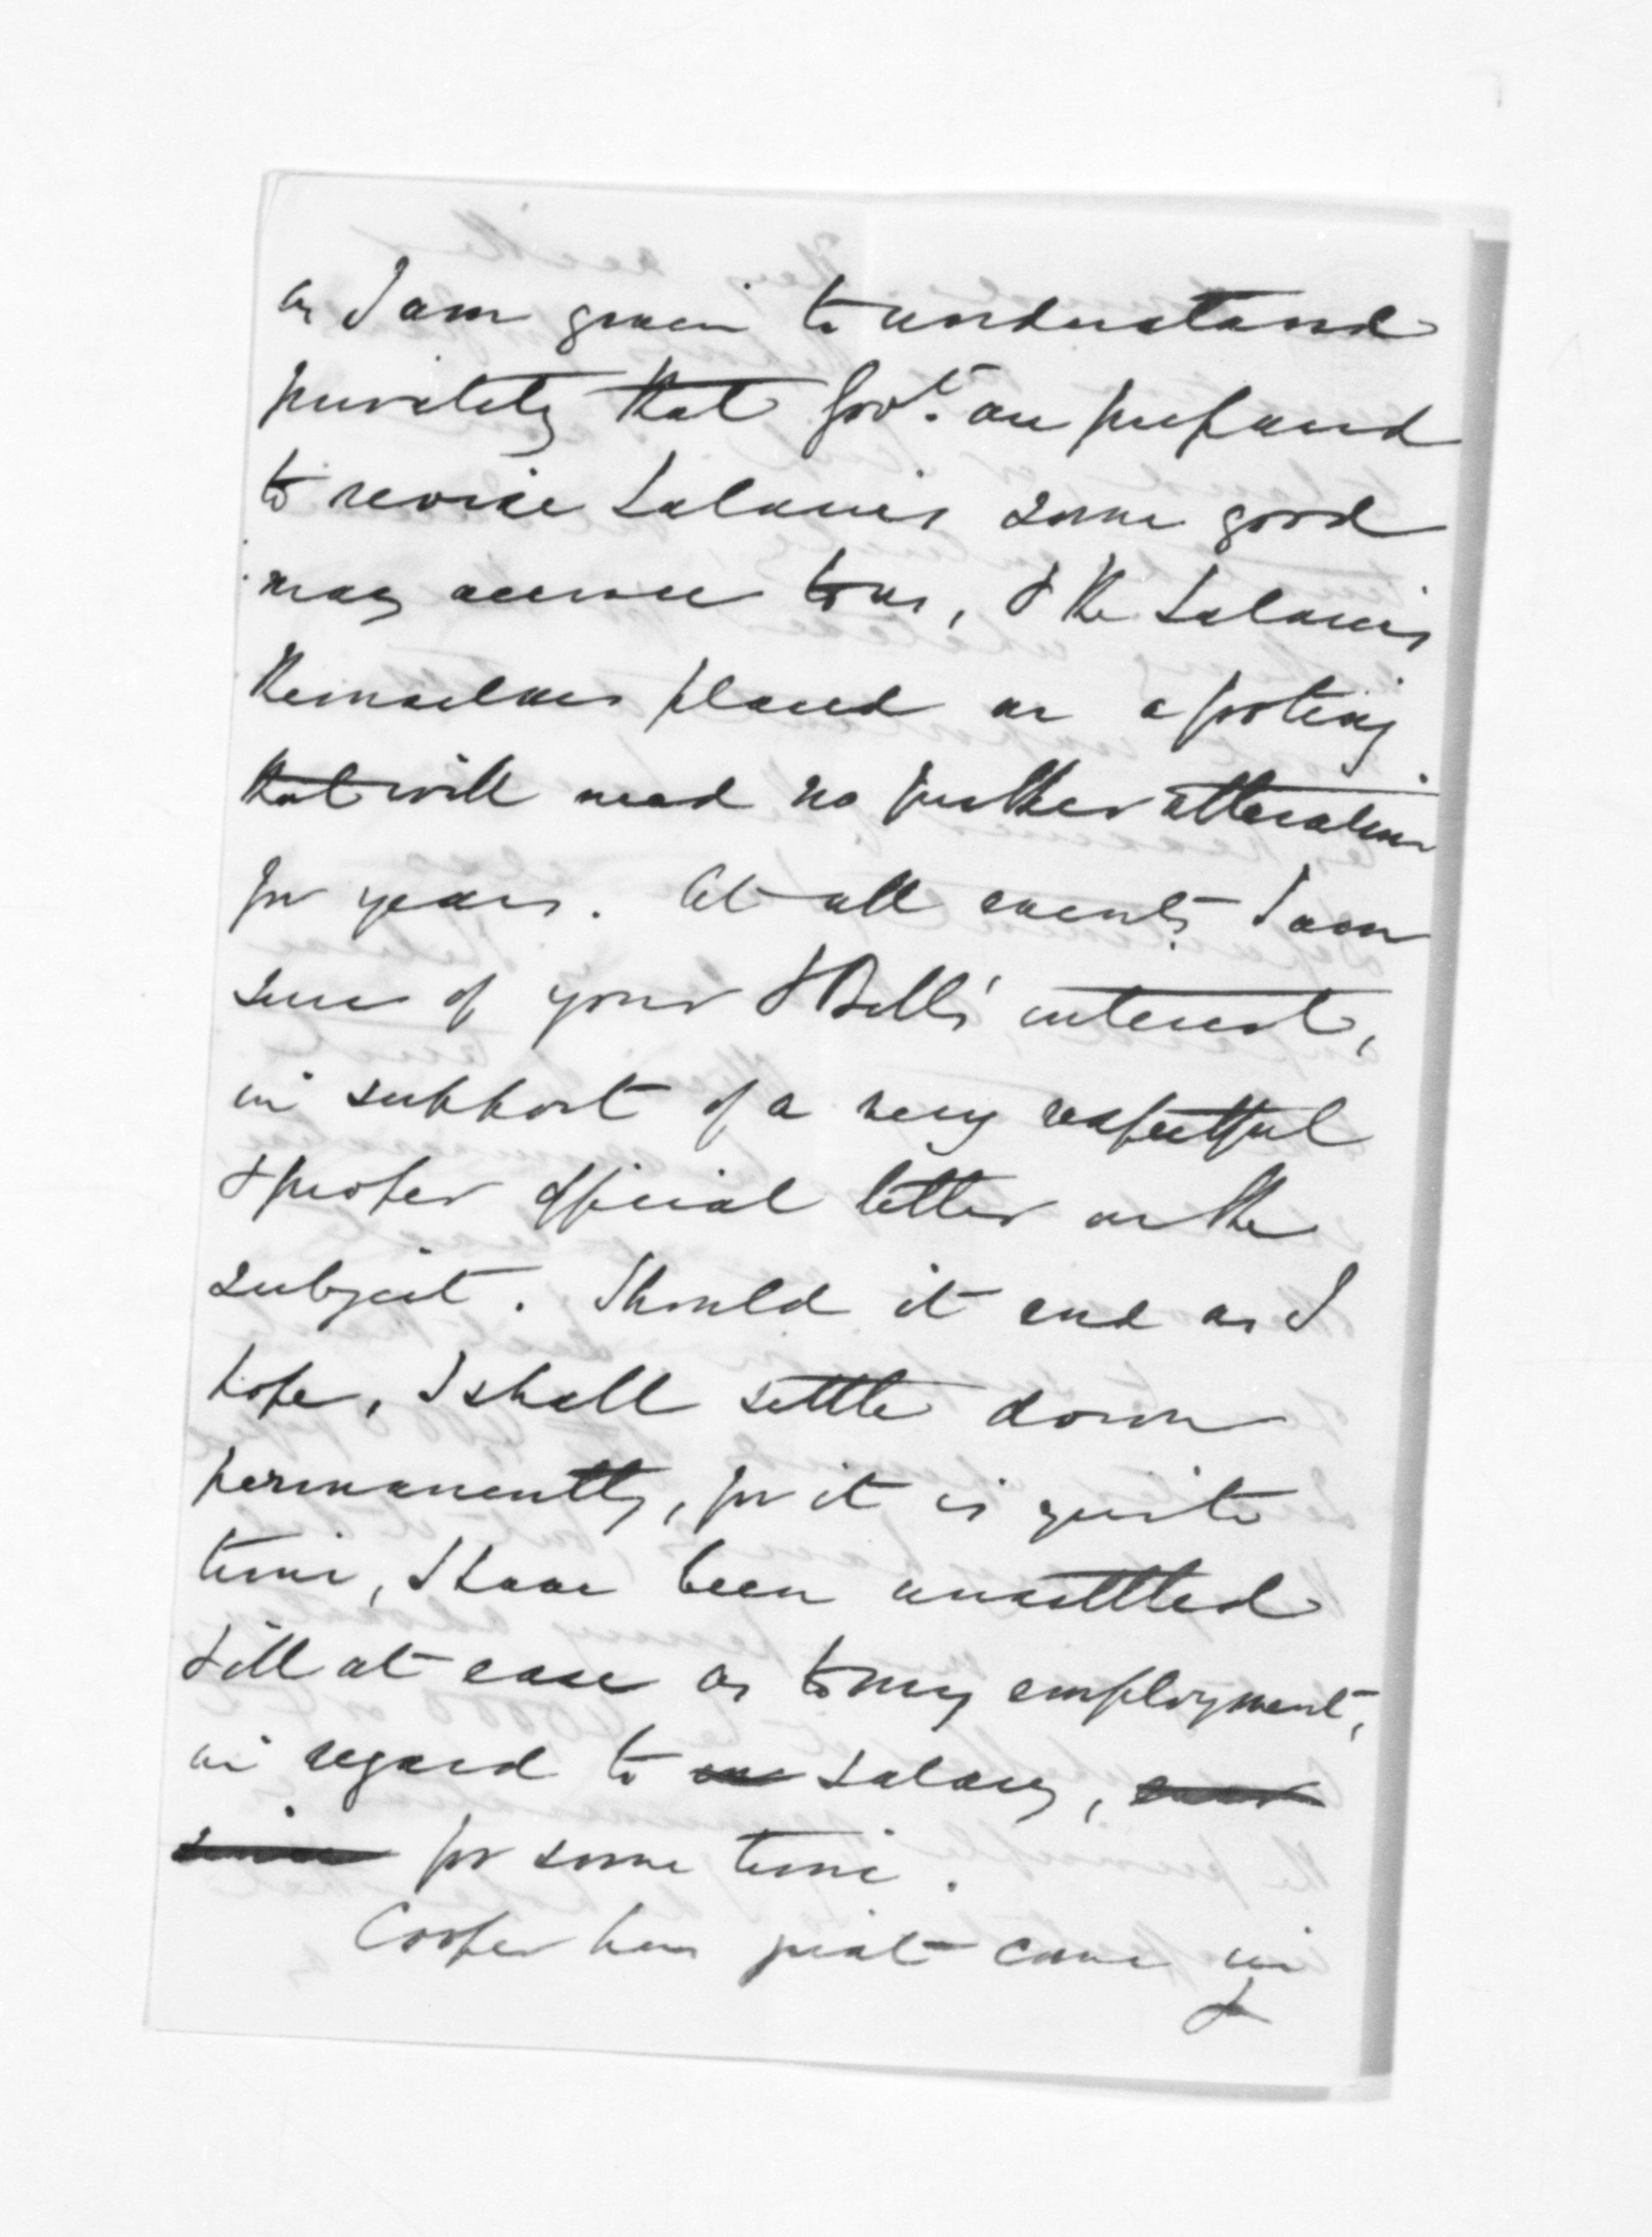 as I am given to understand
privately that Govt. are prepared
to revise salaries some good
may accrue to us, & the salaries
themselves placed on a footing
that will need no further alteration
for years. At all events I am
sure of your & Bell's interest,
in support of a very respectful
& proper official letter on the
subject. Should it end as I
hope, I shall settle down
permanently, for it is quite
time, I have been unsettled
& ill at ease as to my employment,
in regard to salary,
since for some time.
Cooper has just come in
&